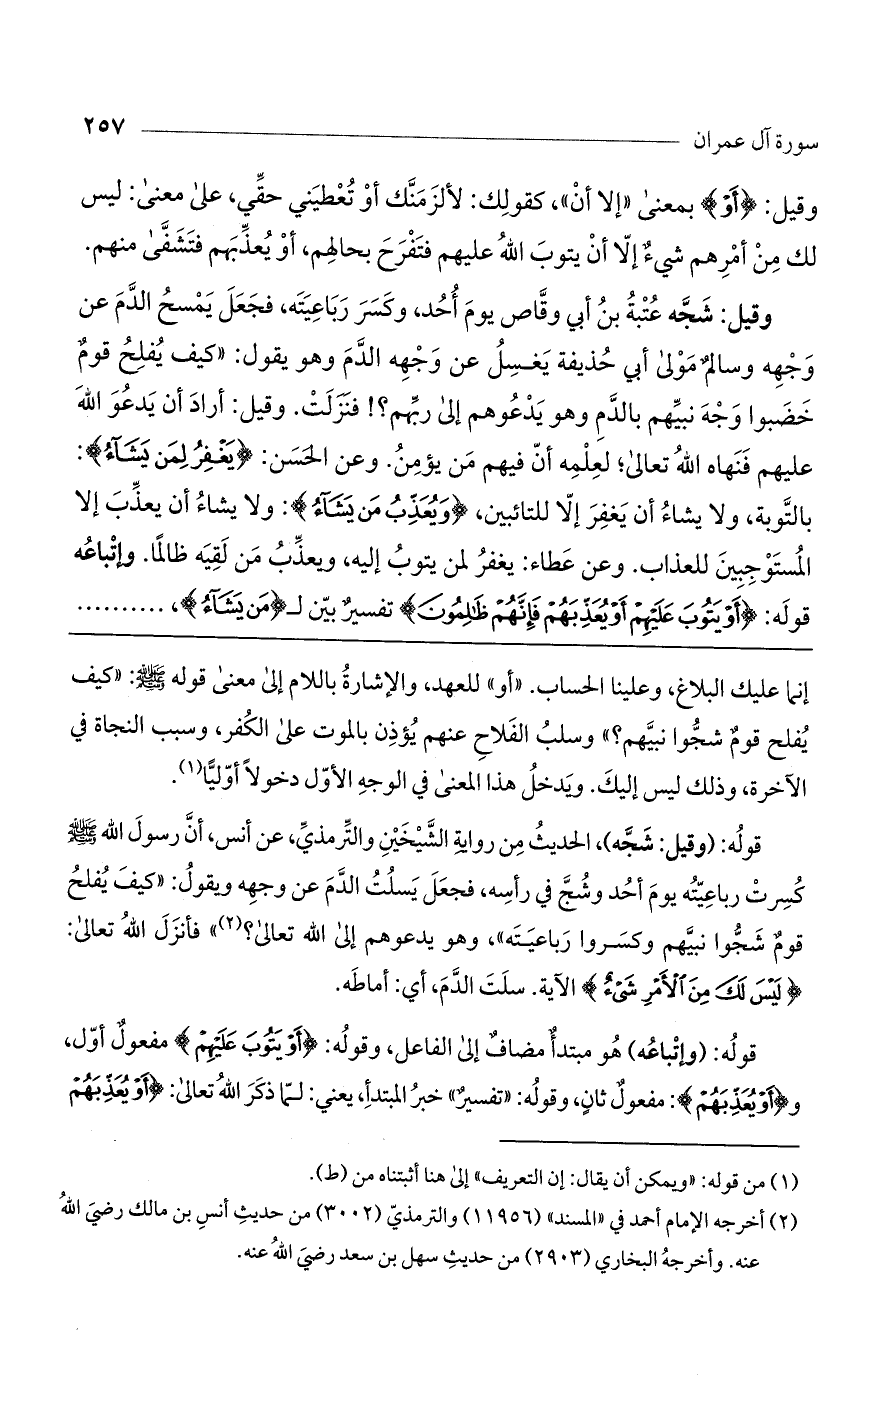 سورة آل عمران ٢٥٧
وقيل: ﴿أَوْ﴾ بمعنىٰ «إلا أنْ»، كقولِك: لألزمَنَّك أوْ تُعْطيَني حقِّي، علىٰ معنىٰ: ليس
لك مِنْ أمْرِهم شيءٌ إلّا أنْ يتوبَ اللهُ عليهم فتَفْرَحَ بحالِهم، أوْ يُعذِّبَهم فتَشَفَّىٰ منهم.
وقيل: شَجَّه عُتْبةُ بنُ أبي وقَّاص يومَ أُحُد، وكَسَرَ رَبَاعِيَتَه، فجَعَلَ يَمْسحُ الدَّمَ عن
وَجْهِه وسالمٌ مَوْلىٰ أبي حُذيفة يَغسِلُ عن وَجْهِه الدَّمَ وهو يقول: «كيف يُفلحُ قومٌ
خَضَبوا وَجْهَ نبيِّهم بالدَّمِ وهو يَدْعُوهم إلىٰ ربِّهم؟! فنَزَلَتْ. وقيل: أرادَ أن يَدعُوَ اللهَ
عليهم فَنَهاه اللهُ تعالىٰ؛ لعِلْمِه أنّ فيهم مَن يؤمِنُ. وعن الحَسَن: ﴿يَغْفِرُ لِمَن يَشَآءُ﴾:
بالتَّوبة، ولا يشاءُ أن يَغفِرَ إلّا للتائبين، ﴿وَيُعَذِّبُ مَن يَشَآءُ﴾: ولا يشاءُ أن يعذِّبَ إلا
المُستَوْجِبينَ للعذاب. وعن عَطاء: يغفرُ لمن يتوبُ إليه، ويعذِّبُ مَن لَقِيَه ظالمًا. وإتْباعُه
قولَه: ﴿أَوْ يَتُوبَ عَلَيْهِمْ أَوْ يُعَذِّبَهُمْ فَإِنَّهُمْ ظَٰلِمُونَ﴾ تفسيرٌ بيّن لـ﴿مَن يَشَآءُ﴾، ..........
إنما عليك البلاغ، وعلينا الحساب. «أو» للعهد، والإشارةُ باللام إلىٰ معنىٰ قوله ﷺ: «كيف
يُفلح قومٌ شجُّوا نبيَّهم؟» وسلبُ الفَلاحِ عنهم يُؤذِن بالموت علىٰ الكُفر، وسبب النجاة في
الآخرة، وذلك ليس إليكَ. ويَدخلُ هذا المعنىٰ في الوجهِ الأوّل دخولاً أوّليًّا(١).
قولُه: (وقيل: شَجَّه)، الحديثُ مِن روايةِ الشَّيْخَيْنِ والتِّرمذيِّ، عن أنس، أنَّ رسولَ الله ﷺ
كُسِرتْ رباعيّتُه يومَ أُحُد وشُجَّ في رأسِه، فجعَلَ يَسلُتُ الدَّمَ عن وجهِه ويقولُ: «كيفَ يُفلحُ
قومٌ شَجُّوا نبيَّهم وكسَروا رَباعيَتَه»، وهو يدعوهم إلىٰ الله تعالىٰ؟(٢)» فأنزَلَ اللهُ تعالىٰ:
﴿لَيْسَ لَكَ مِنَ ٱلْأَمْرِ شَىْءٌ﴾ الآية. سلَتَ الدَّمَ، أي: أماطَه.
قولُه: (وإتْباعُه) هُو مبتدأٌ مضافٌ إلىٰ الفاعل، وقولُه: ﴿أَوْ يَتُوبَ عَلَيْهِمْ﴾ مفعولٌ أوّل،
و﴿أَوْ يُعَذِّبَهُمْ﴾: مفعولٌ ثانٍ، وقولُه: «تفسيرٌ» خبرُ المبتدأِ، يعني: لـمّا ذكَرَ اللهُ تعالىٰ: ﴿أَوْ يُعَذِّبَهُمْ
(١) من قوله: «ويمكن أن يقال: إن التعريف» إلىٰ هنا أثبتناه من (ط).
(٢) أخرجه الإمام أحمد في «المسند» (١١٩٥٦) والترمذيّ (٣٠٠٢) من حديثِ أنسِ بن مالك رضيَ اللهُ
عنه. وأخرجهُ البخاري (٢٩٠٣) من حديثِ سهل بن سعد رضيَ اللهُ عنه.